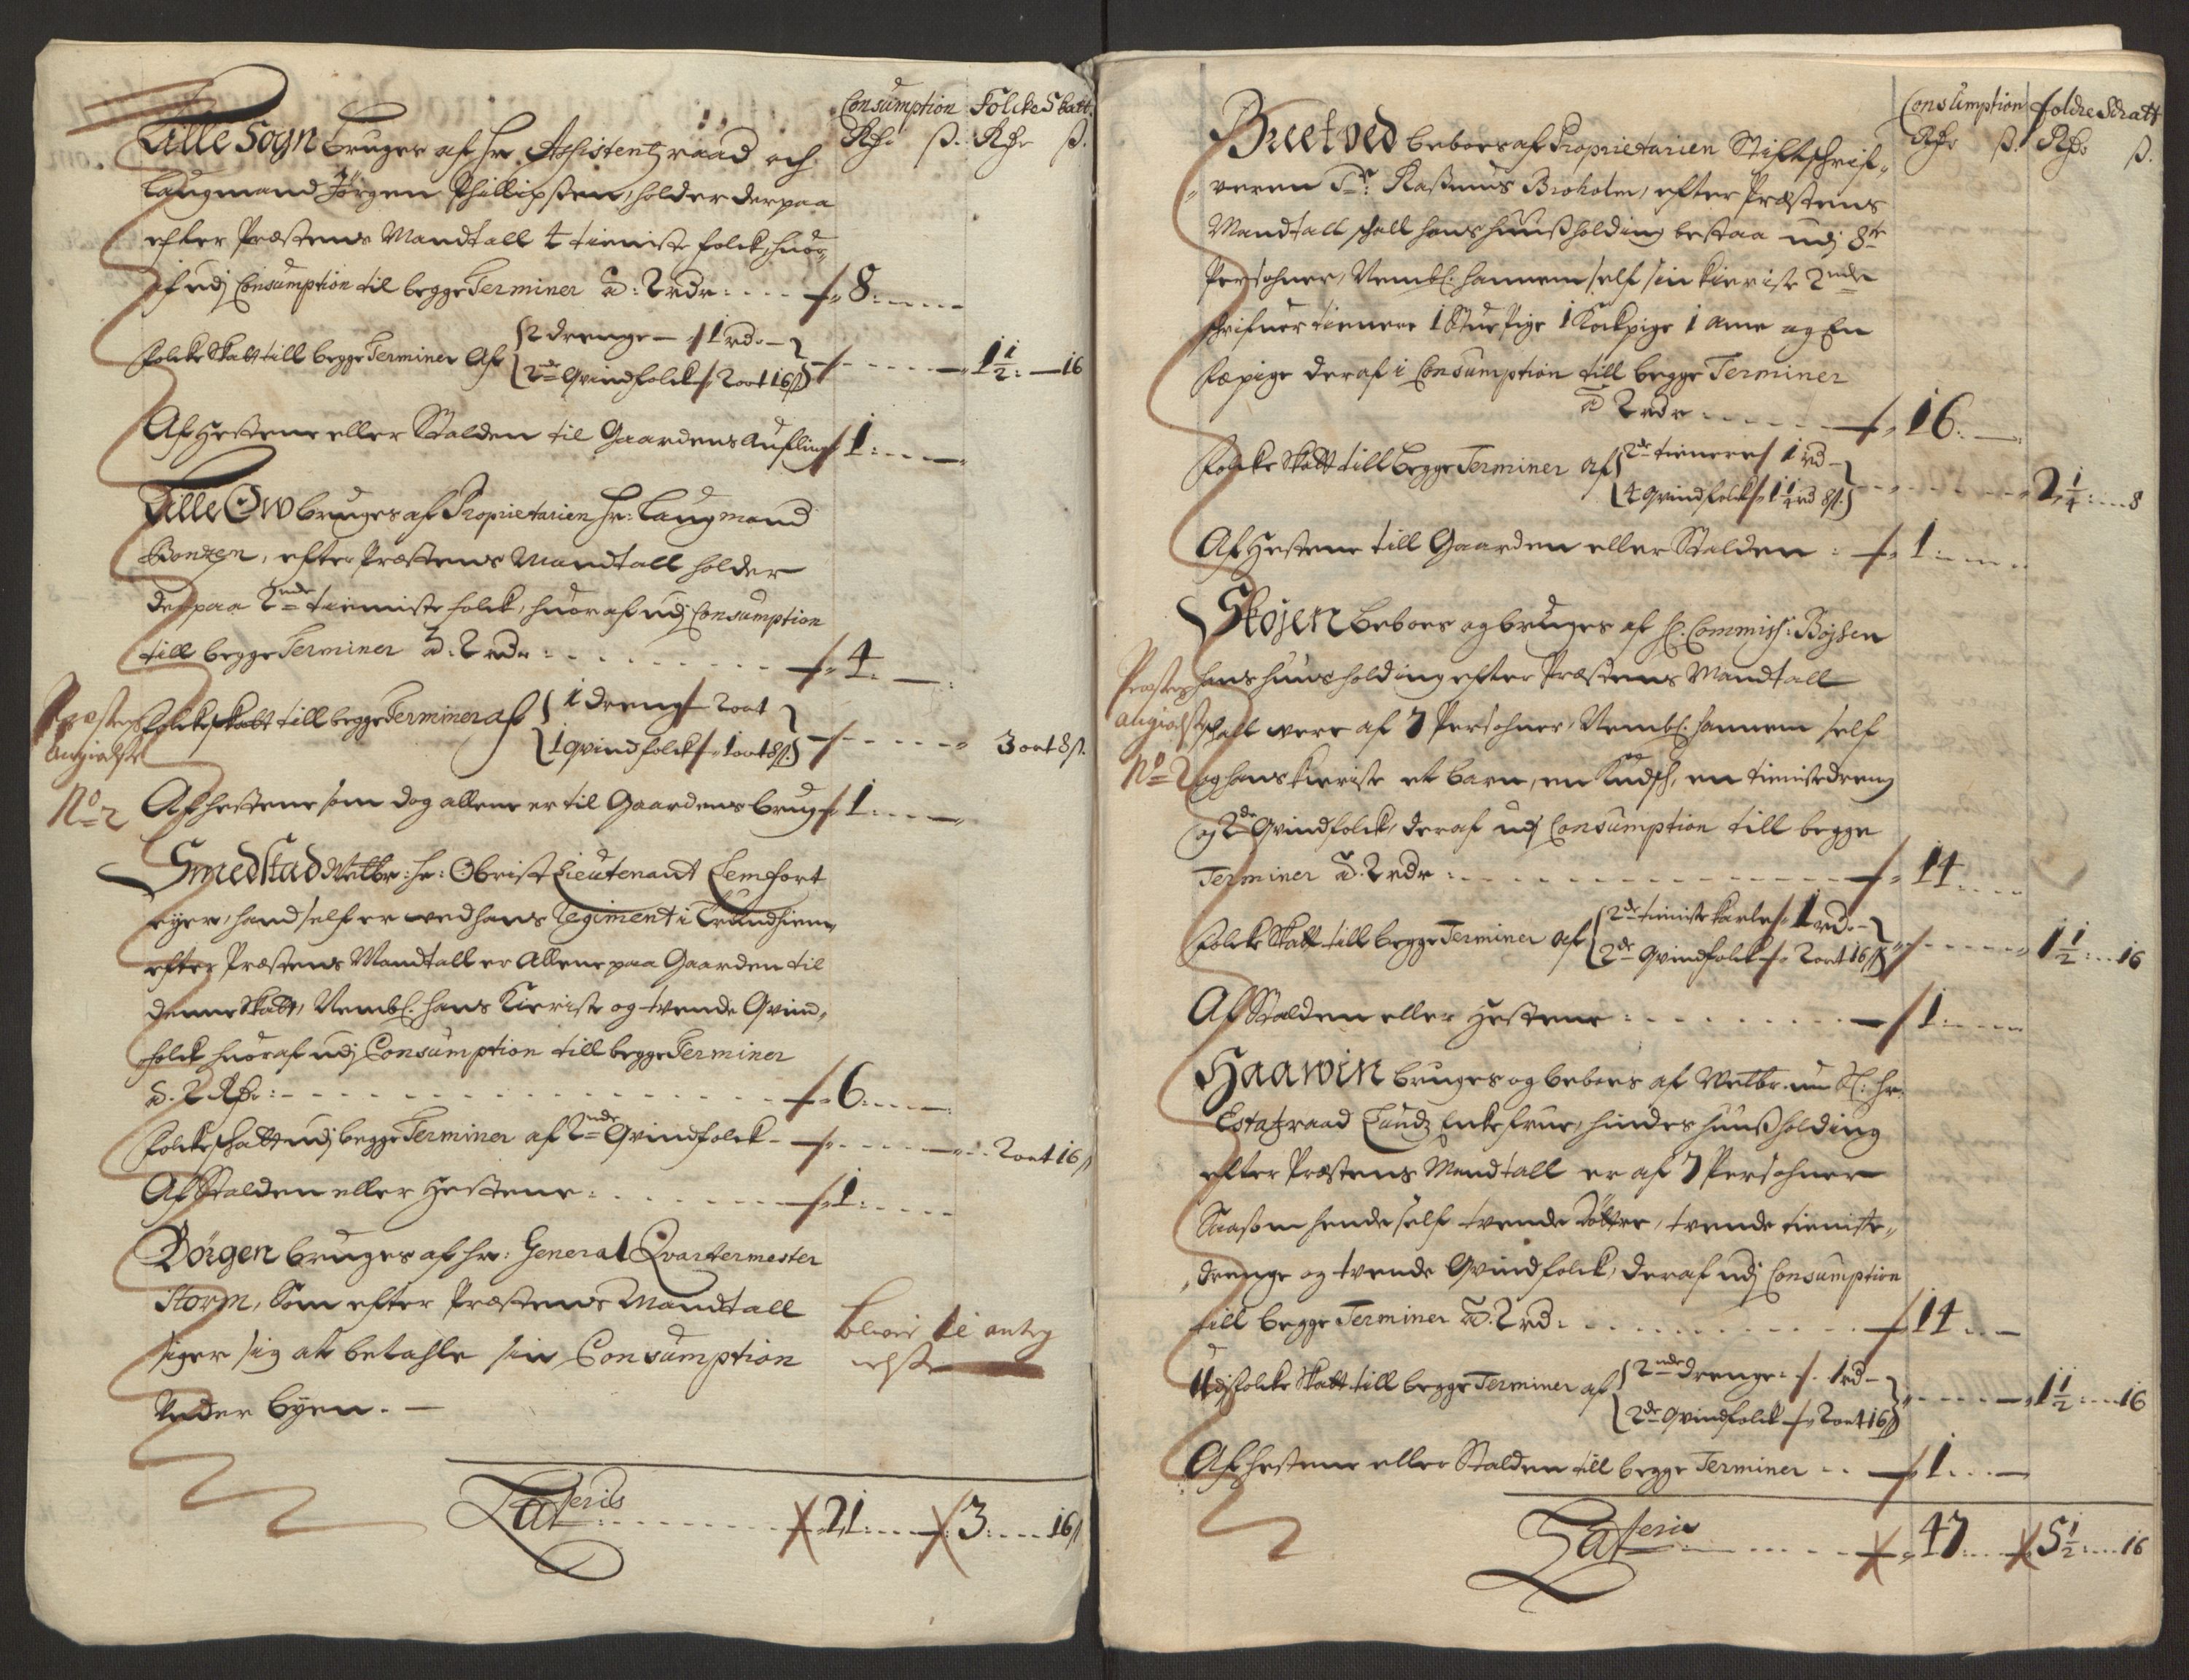 Consumption Folcke Skatt.
Rdr. ß. Rdr ß.
Lille Sogn bruges af hr Assistentz raad och
Laugmand Jörgen Phillipsen, holder derpaa
efter Præstens Mandtall 4 tieniste folck, huor
af udj Consumption til begge Terminer â: 2 rdr: 8:
Folcke Skatt till begge Terminer Af { 2 drenge 1 rd.
{ 2de Qvindfolck 2 ort 16 ß } 1½: 16
Af Hestene eller Stalden til Gaardens Aufling 1:
Lille Ow bruges af Proprietarien hr: Laugmand
Bonzen, efter Præstens Mandtall holder
derpaa 2nde tieniste folck, huoraf udj Consumption
till begge Terminer â. 2 rdr: 4:
Præstens
Angivelse
No 2
Folckeskatt till begge Terminer af { 1 dreng 2 ort
{ 1 qvindfolck 1 ort 8 ß. } 3 ort 8 ß.
Af hestene som dog allene er til Gaardens brug 1:
Smedstad Welbr: hr: Obrist Lieutenant Lemfort
eyer, hand self er ved hans Regiment i Trundhiem,
efter Præstens Mandtall er Allene paa Gaarden til
denne Skatt, Nembl. hans Kieriste og tvende Qvind,
folck huoraf udj Consumption till begge Terminer
â. 2 Rdr: 6:
Folckeschatt udj begge Terminer af 2nde Qvindfolck 2 ort 16 ß
Af Stalden eller Hestene: 1:
Börgen bruges af hr: General Qvartermester
Storm, Som efter Præstens Mandtall
siger sig at betahle sin Consumption
Under byen.
Lateris 21: 3: 16 ß
Consumption Folcke Schatt
Rdr ß. Rdr ß.
Breetved beboes af Proprietarien Stiftschrif-
veren Sr. Rasmus Broholm, efter Præstens
Mandtall schall hans huusholding bestaa udj 8te
Persohner, Nembl. hannem self sin kieriste 2nde
schrifuer tienere 1 Stue Pige 1 Kockpige 1 ame og En
Fæpige deraf i Consumption till begge Terminer
â 2 rdr 16:
Folcke Skatt till begge Terminer af { 2de tienere 1 rd
{ 4 qvindfolck 1¼ rd 8 ß. } 2¼: 8
Af Hestene till Gaarden eller Stalden: 1:
Skojen beboes og bruges af H. Commiss: Bojsen
Præstens
angivelse
No 2
hans huusholding efter Præstens Mandtall
schall were af 7 Persohner, Nembl. hannem self
og hans kieriste et barn, en Kudsch, en tienistedreng
og 2de Qvindfolck, deraf udj Consumption till begge
Terminer â. 2 rdr: 14
Folcke Skatt till begge Terminer af { 2de tieniste karle 1 rd.
{ 2de Qvindfolck 2 ort 16 ß } 1½: 16
Af Stalden eller Hestene: 1:
Haawin bruges og beboes af Welbr. nu Sl: hr:
Estatzraad Lundz Enke frue, hindes huusholding
efter Præstens Mandtall er af 7 Persohner
Saasom hende self tvende Dötter, tvende tieniste-
drenge og tvende Qvindfolck, deraf udj Consumption
till begge Terminer â. 2 rd: 14
Udj folcke Skatt till begge Terminer af { 2nde drenge 1 rd
{ 2de Qvindfolck 2 ort 16 ß } 1½: 16
Af hestene eller Stalden till begge Terminer 1:
Lateris 47: 5½: 16